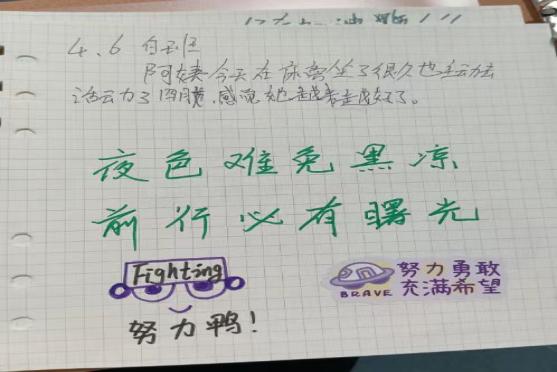 4.6 白班
阿姨今天在床旁坐了很久也主动
活动力了四肢,感觉她越来越好了。
夜色难免黑凉
前行必有曙光
Fighting
努力鸭!
BRAVE
努力勇敢
充满希望